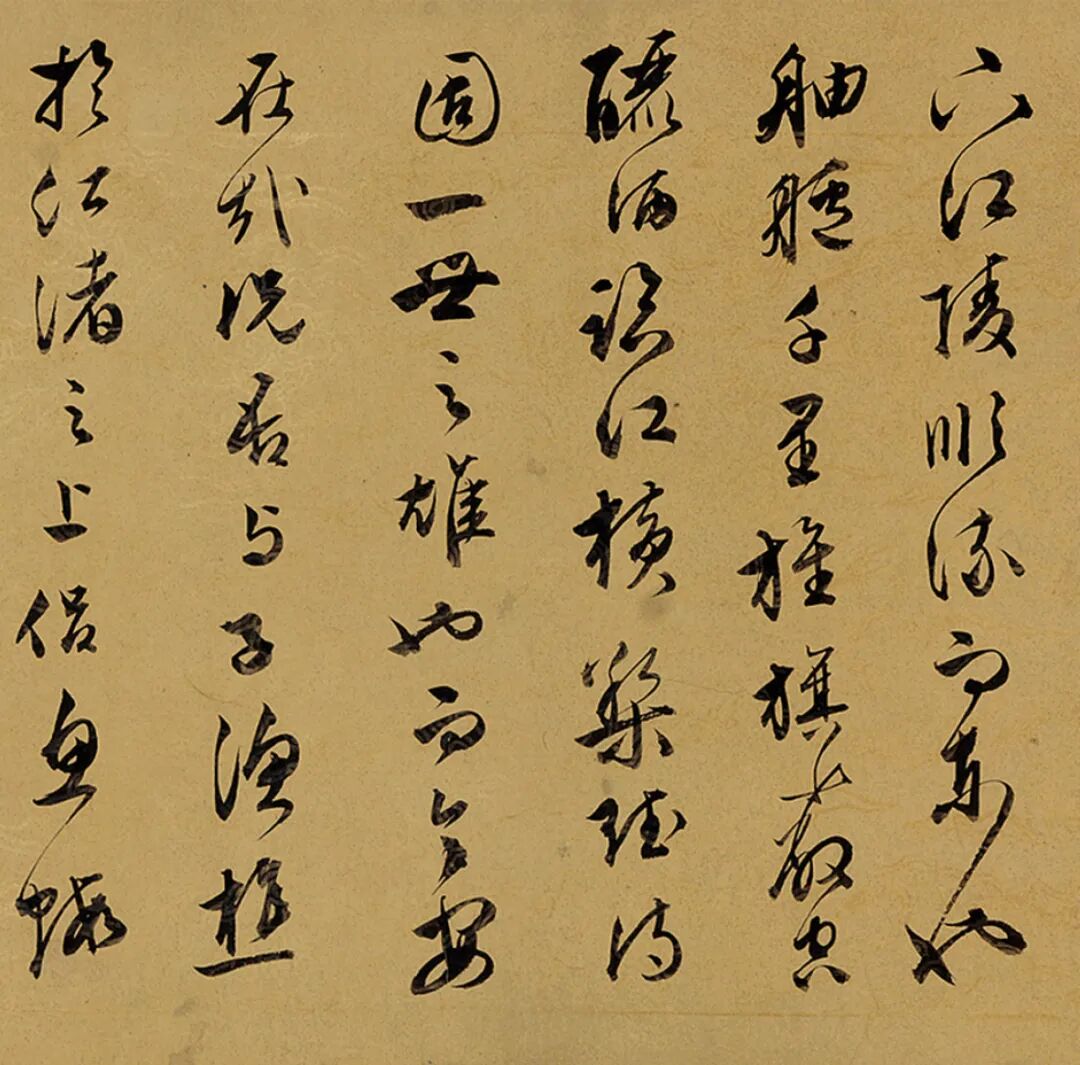 下江陵順流而東也
舳艫千里旌旗蔽空
釃酒臨江橫槊賦詩
固一世之雄也而今安
在哉況吾与子漁樵
於江渚之上侶魚蝦